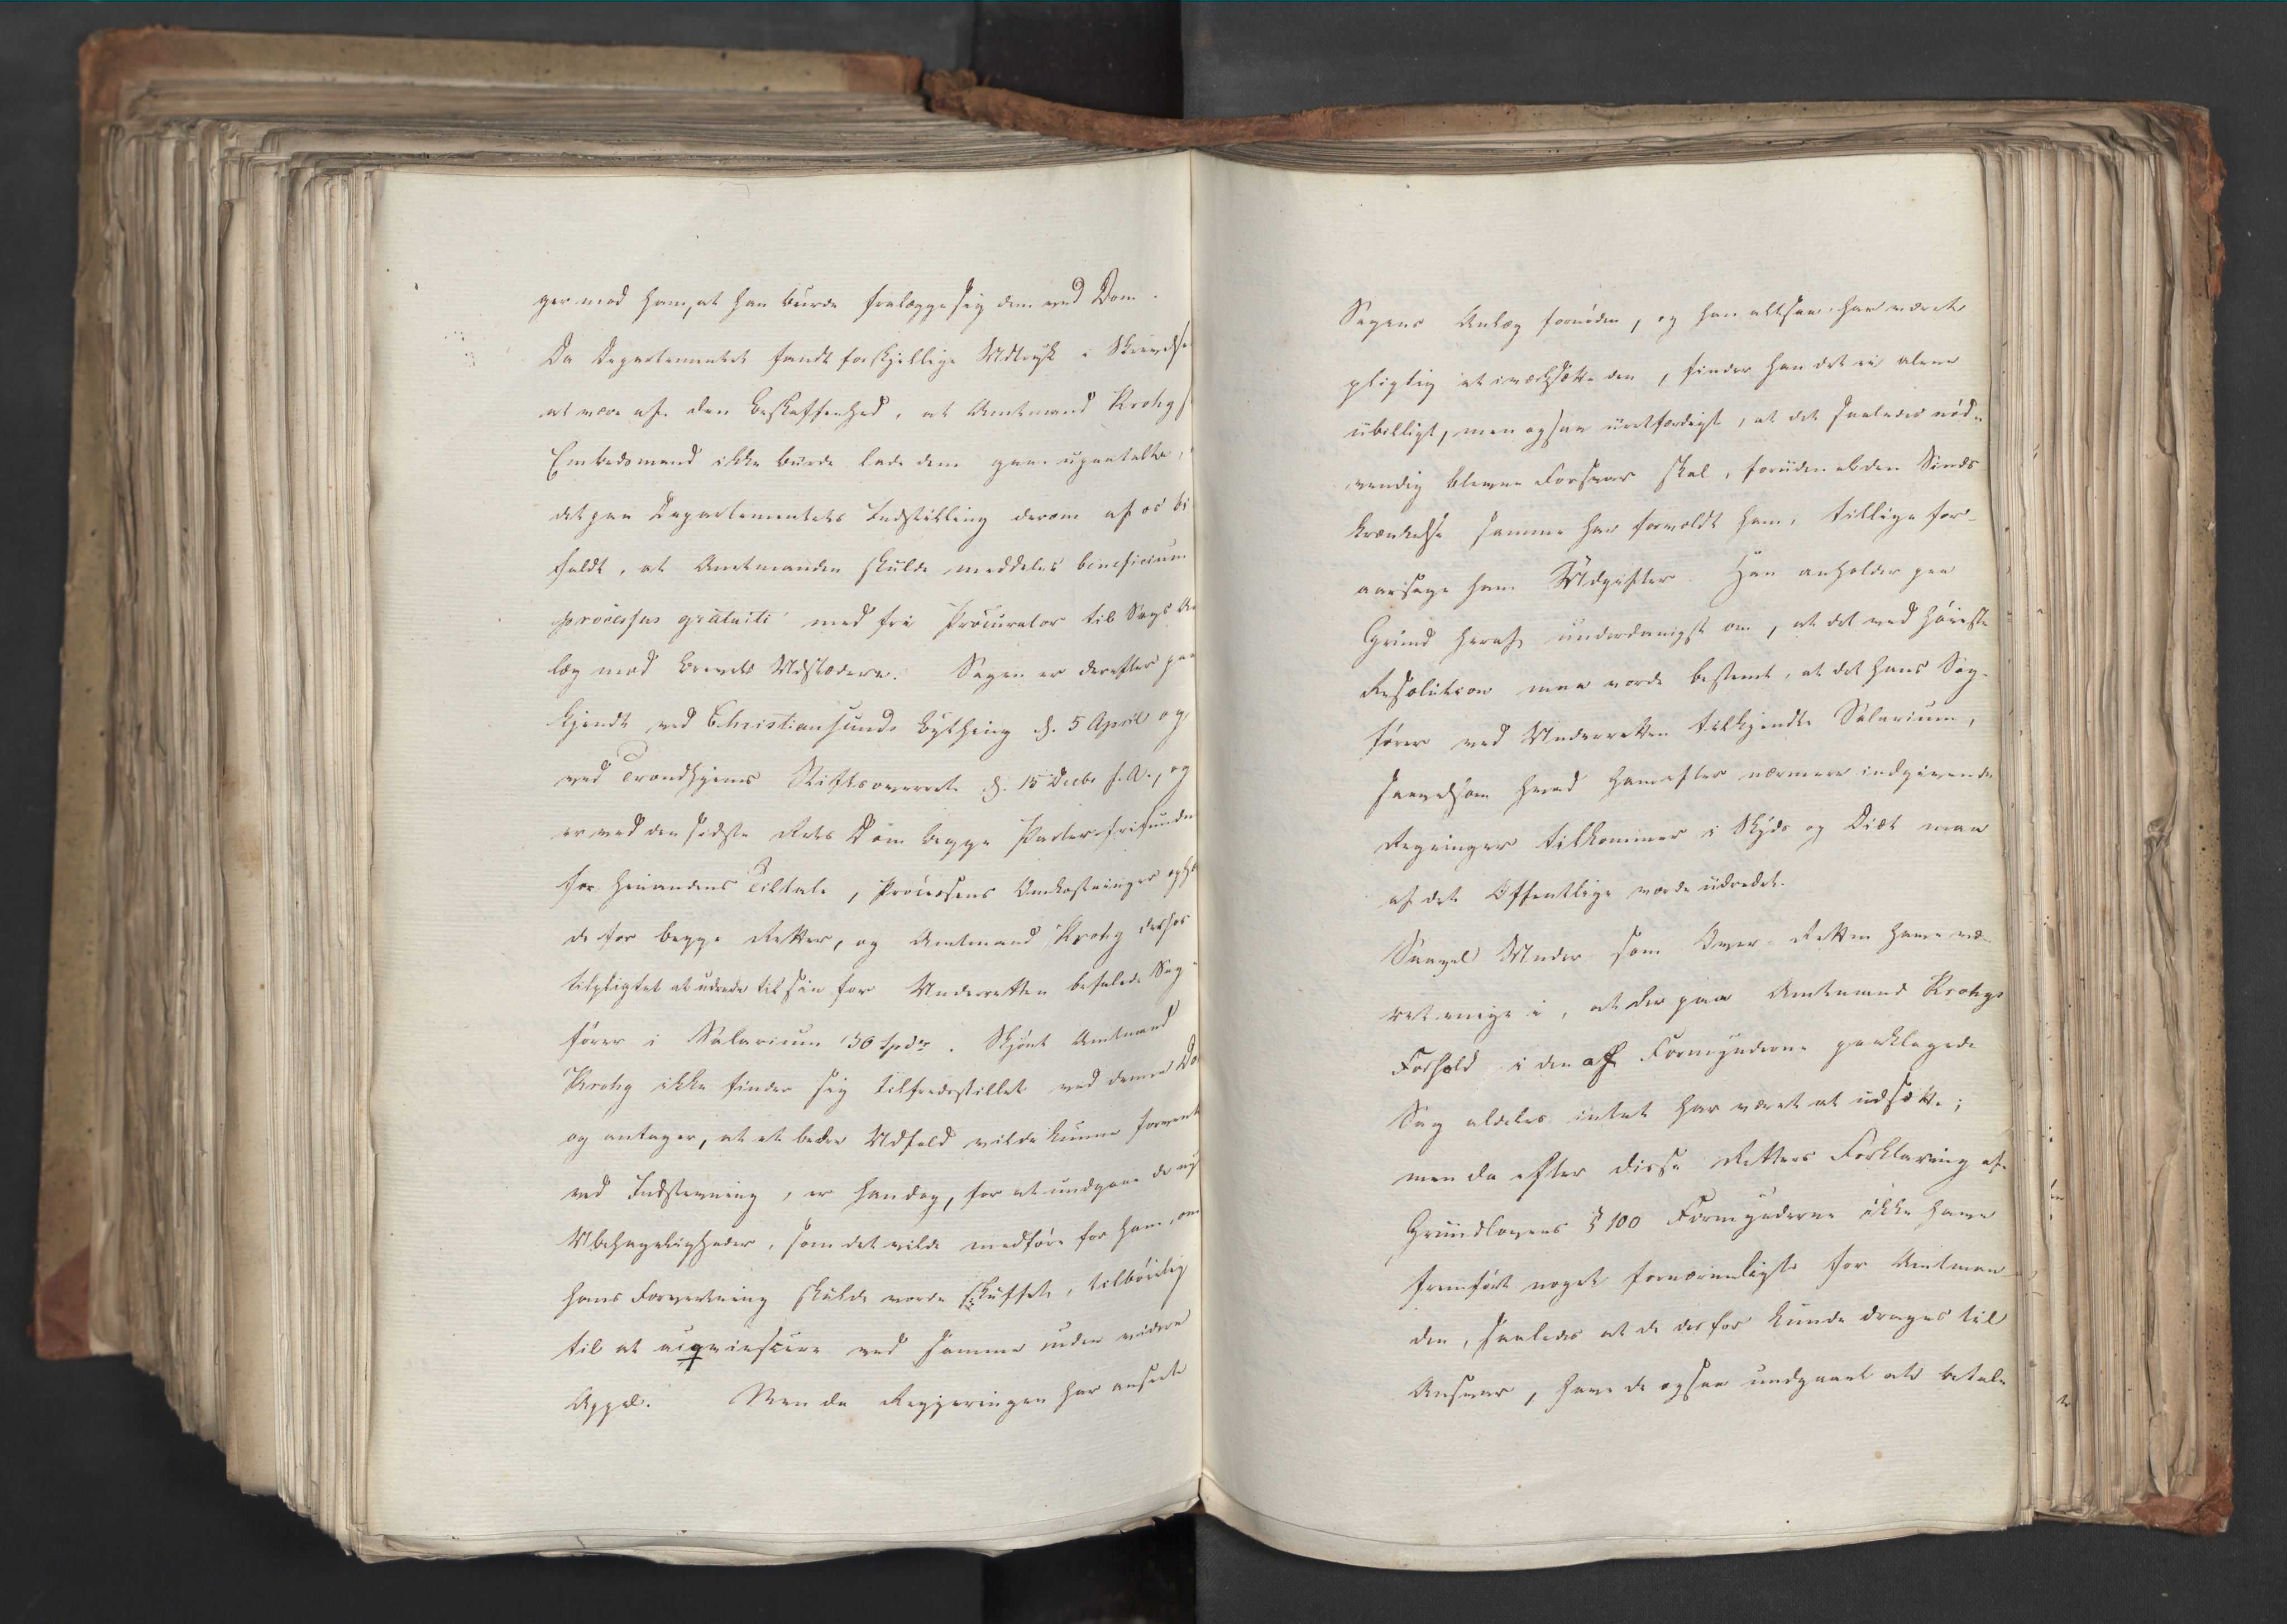 ger mod ham, at han burde fralægge sig dem ved Dom.
Da Departementet fandt forskjellige Udtryk i Skrivelse
at være af den Beskaffenhed, at Amtmand Krohg s
Embedsmand ikke burde lade dem gaae upaatalte,
det paa Departementets Indstilling derom af os bi
faldt, at Amtmanden skulde meddeles beneficium
processus gratuiti med fri Procurator til Sags An
læg mod Brevets Udstædere. Sagen er derefter paa
kjendt ved Christiansunds Bything d. 5 April og
ved Trondhjems Stiftsoverret d. 15 Decbr f. A., og
er ved den sidste Rets Dom begge Parter frifundne
for hinandens Tiltale, Processens Omkostninger ophæ
de for begge Retter, og Amtmand Krohg derhos
tilpligtet at udrede til sin for Underretten befalede Sag-
fører i Salarium 30 Spdr. Skjönt Amtmand
Krohg ikke finder sig tilfredsstillet ved denne Do
og antager, at et bedre Udfald vilde kunne forvent
ved Indstevning, er han dog, for at undgaae de ny
Ubehageligheder, som det vilde medføre for ham, om
hans Forventning skulde vorde skuffet, tilbøielig
til at acqviescere ved samme uden videre
Appel. Men da Regjeringen har anseet
Sagens Anlæg fornøden, og han altsaa har været
pligtig at iværksætte den, finder han det ei alene
ubilligt, men ogsaa uretfærdigt, at det saaledes nød-
vendig blevne Forsvar skal, foruden al den Sinds
krænkelse samme har forvoldt ham, tillige for-
aarsage ham Udgifter. Han anholder paa
Grund heraf underdanigst om, at det ved höieste
Resolution maa vorde bestemt, at det hans Sag-
fører ved Underretten tilkjendte Salarium,
saavelsom hvad ham efter nærmere indgivende
Regninger tilkommer i Skyds og Diæt maa
af det Offentlige vorde udredet.
Saavel Under som Over-Retten have væ-
ret enige i, at der paa Amtmand Krohgs
Forhold i den af Formynderne paaklagede
Sag aldeles intet har været at udsætte;
men da efter disse Retters Forklaring af
Grundlovens § 100 Formynderne ikke have
fremført noget fornærmeligt for Amtman-
den, saaledes at de derfor kunde drages til
Ansvar, have de ogsaa undgaaet at betale